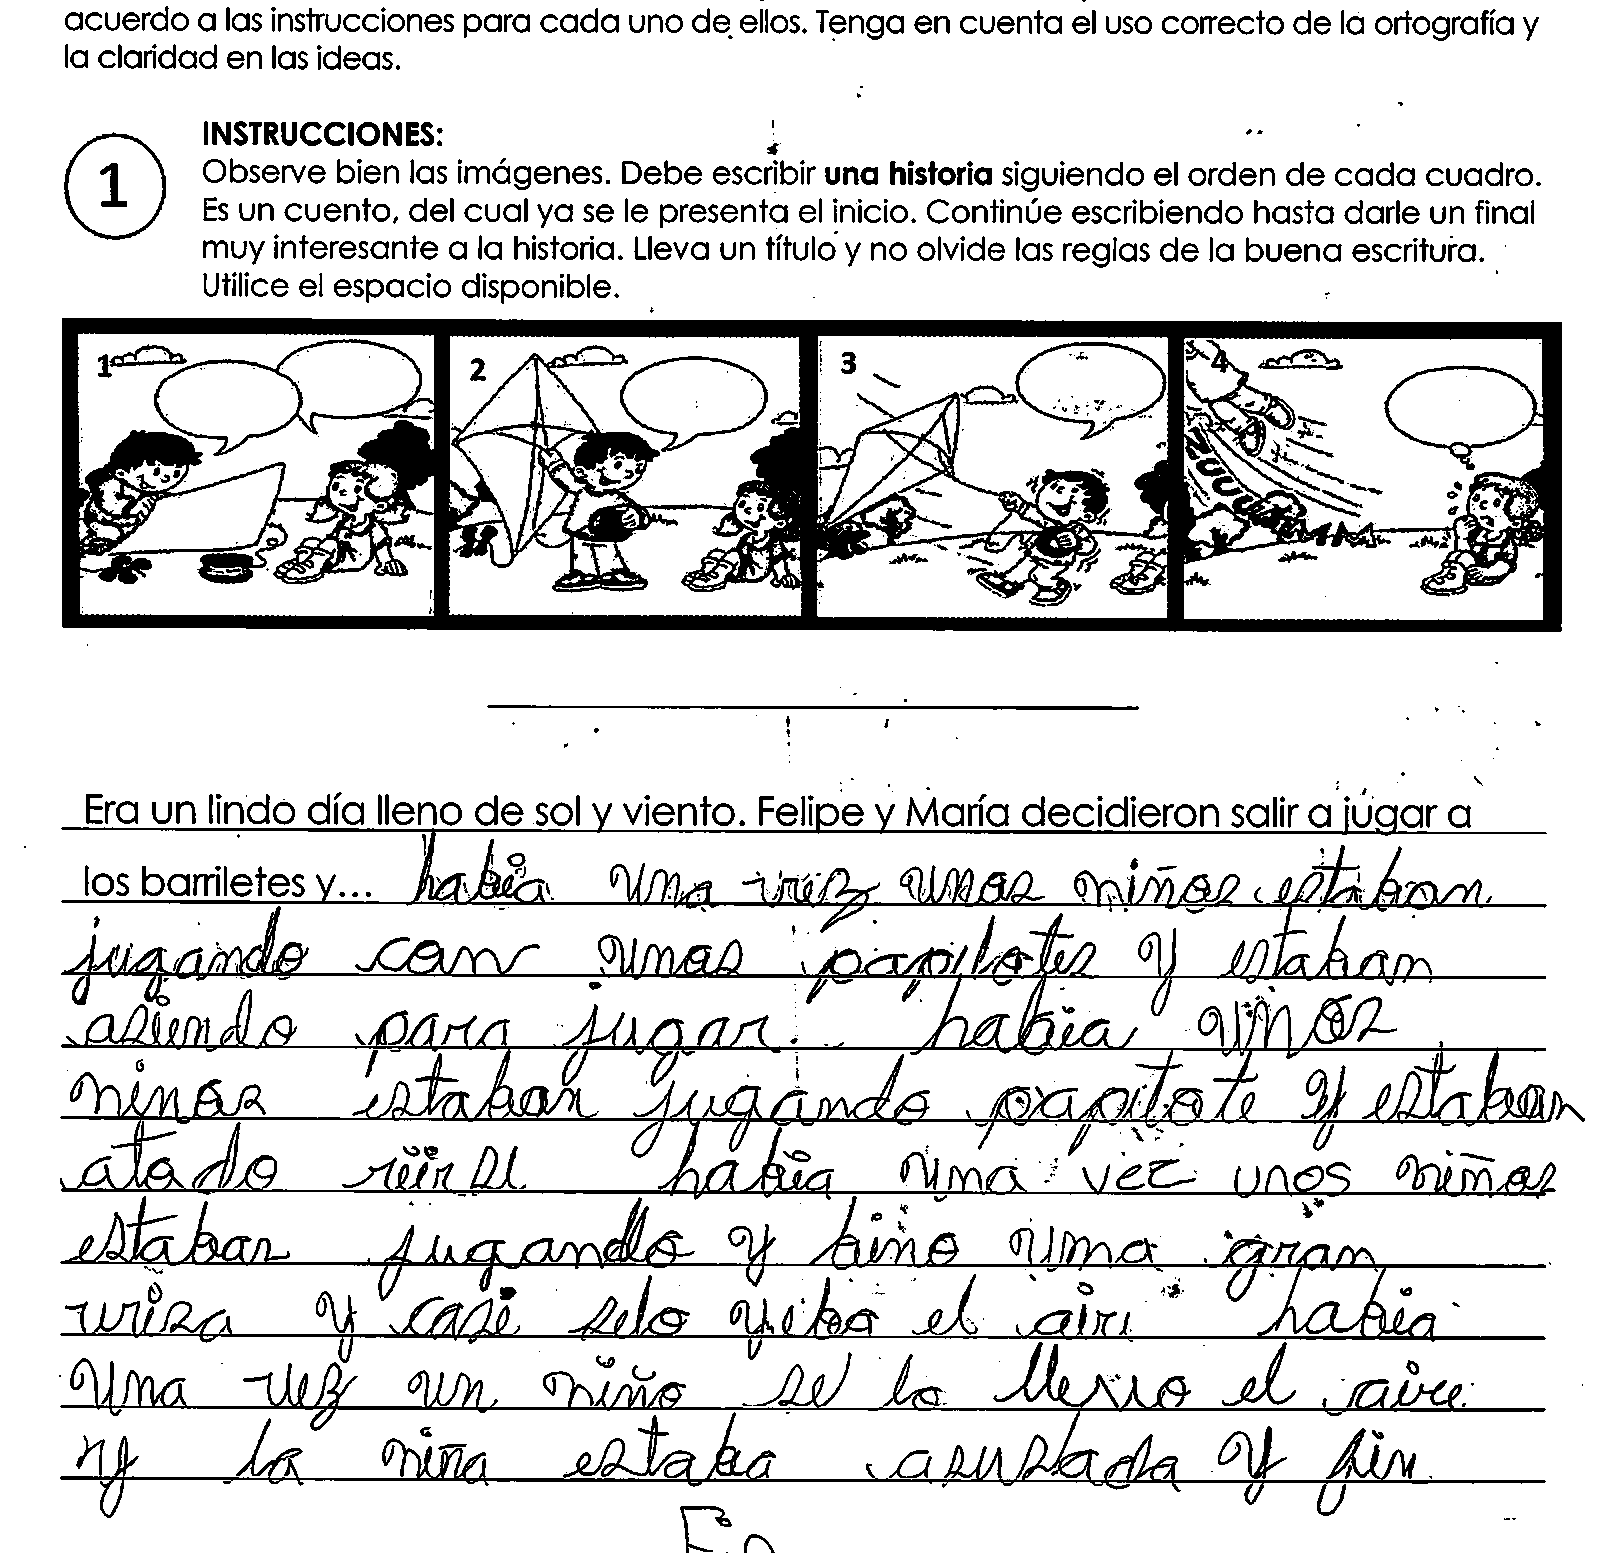 acuerdo a las instrucciones para cada uno de ellos. Tenga en cuenta el uso correcto de la ortografía y
la claridad en las ideas.
1
INSTRUCCIONES:
Observe bien las imágenes. Debe escribir una historia siguiendo el orden de cada cuadro.
Es un cuento, del cual ya se le presenta el inicio. Continúe escribiendo hasta darle un final
muy interesante a la historia. Lleva un título y no olvide las reglas de la buena escritura.
Utilice el espacio disponible.
1 2 3 4
Era un lindo día lleno de sol y viento. Felipe y María decidieron salir a jugar a
los barriletes y... habia una vez unos niños estaban
jugando con unos papilotes y estaban
asiendo para jugar. habia unos
ninos estaban jugando papitote y estaban
atado reirse habia una vez unos niños
estaban jugando y bino una gran
vrisa y casi selo yebo el aire habia
una vez un niño se lo llevo el aire
y la niña estaba asustada y fin